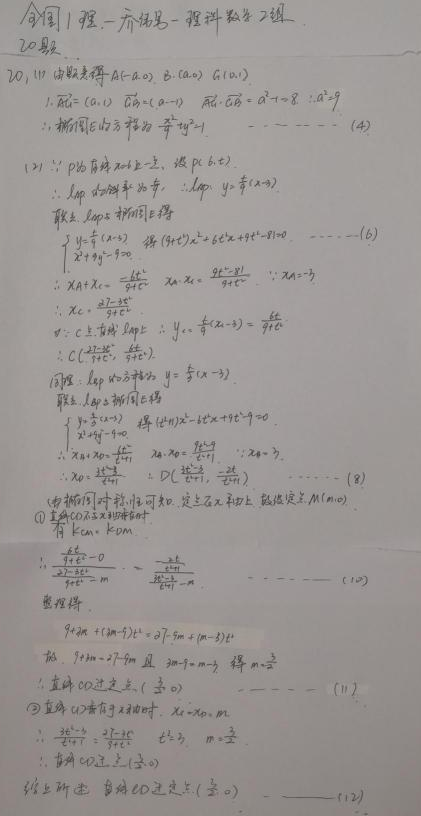 全国1理-乔伟男-理科数学2组
20题
20,(1) 由题意得 A(-a,0) B.(a,0) G(0,1)
∴ AG=(a,1) GB=(a,-1) AG·GB=a²-1=8 ∴a²=9
∴椭圆E的方程为 x²/9+y²=1 ------- (4)
(2) ∵ P为直线x=6上一点, 设P(6,t)
∴ lAP的斜率为 t/9, ∴lAP: y=t/9(x-3)
联立lAP与椭圆E得
{ y=t/9(x-3) 得(9+t²)x²+6t²x+9t²-81=0 ------(6)
x²+9y²-9=0
∴ xA+xC=-6t²/9+t² xA·xC=9t²-81/9+t² ∵xA=-3
∴ xC=27-3t²/9+t²
又∵C点在直线lAP上 ∴yC=t/9(xC-3)=6t/9+t²
∴C(27-3t²/9+t², 6t/9+t²)
同理: lBP的方程为 y=t/3(x-3)
联立lBP与椭圆E得
{ y=t/3(x-3) 得(t²+1)x²-6t²x+9t²-9=0
x²+9y²-9=0
∴ xB+xD=6t²/t²+1 xB·xD=9t²-9/t²+1 ∵xB=3
∴xD=3t²-3/t²+1 ∴D(3t²-3/t²+1, -2t/t²+1) ------ (8)
由椭圆对称性可知. 定点在x轴上, 故设定点M(m,0)
①直线CD不与x轴垂直时
有 KCM=KDM
∴ 6t/9+t²-0 / 27-3t²/9+t²-m = -2t/t²+1 / 3t²-3/t²+1-m ------- (10)
整理得
9+3m+(3m-9)t²=27-9m+(m-3)t²
故. 9+3m=27-9m 且 3m-9=m-3, 得m=3/2
∴直线CD过定点(3/2,0) ----- (11)
②直线CD垂直于x轴时. xC=xD=m
∴ 3t²-3/t²+1=27-3t²/9+t² t²=3 m=3/2
∴直线CD过点(3/2,0)
综上所述 直线CD过定点(3/2,0) ------(12)